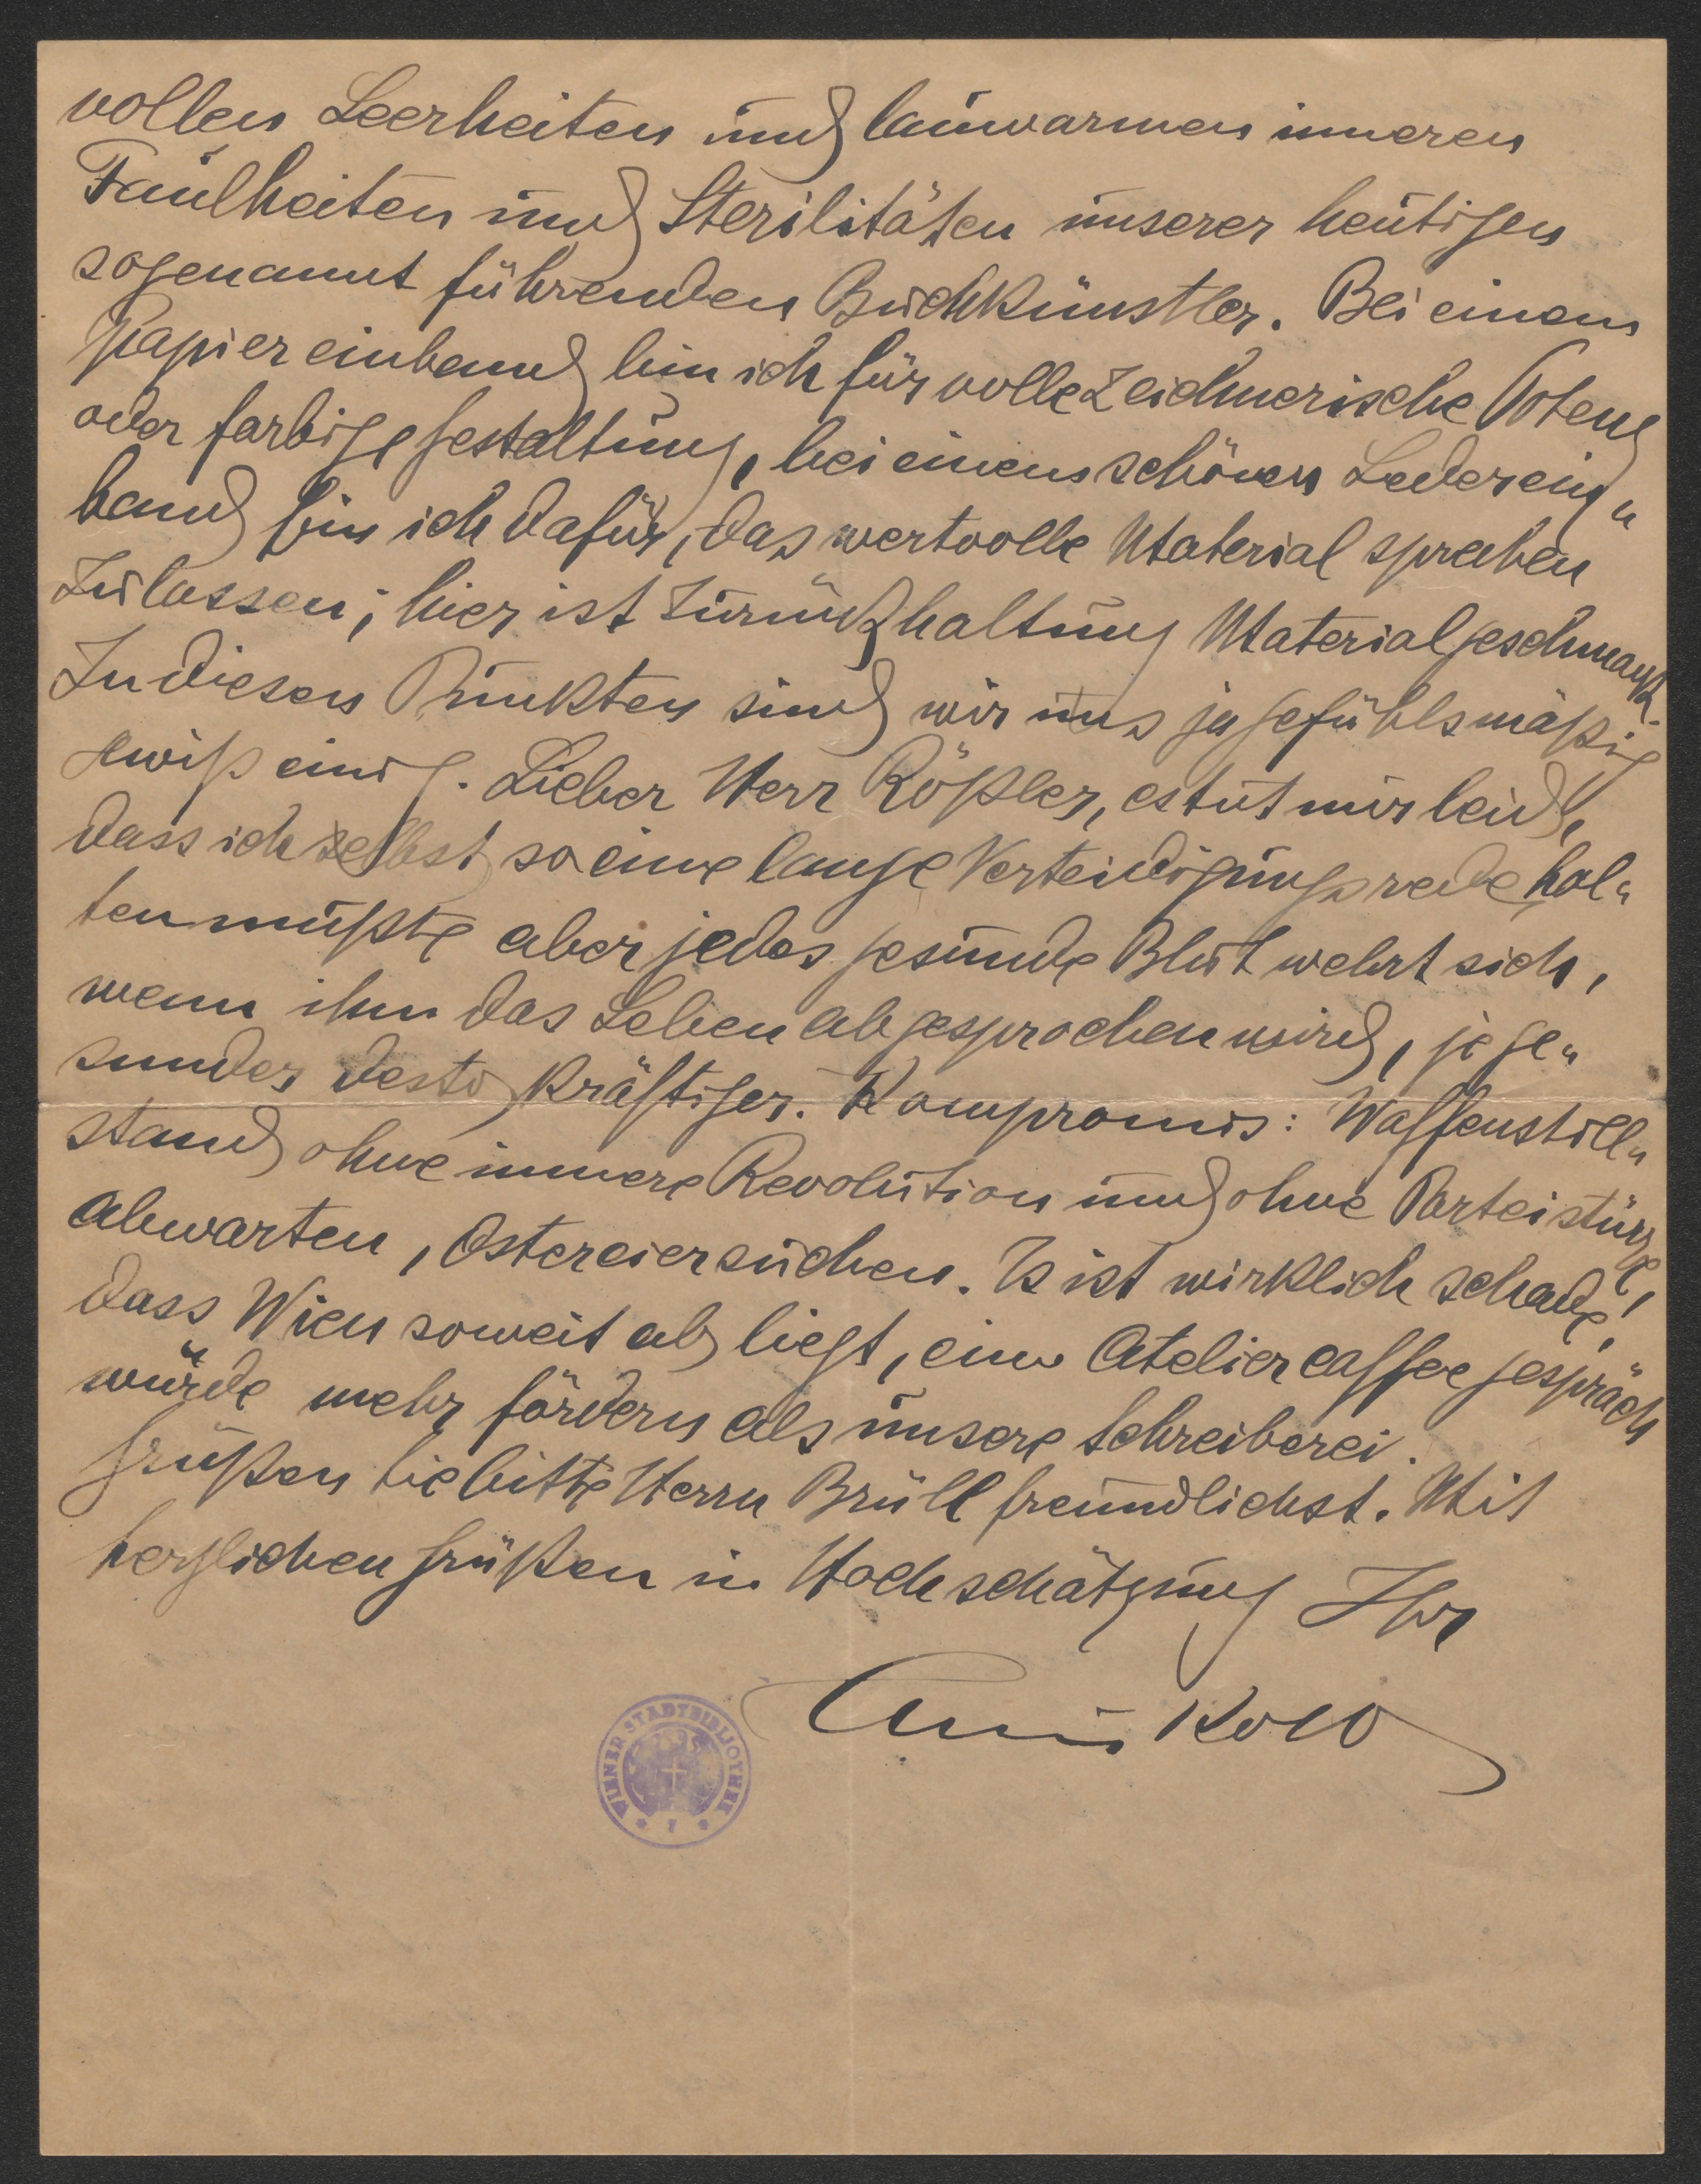 vollen Leerheiten und lauwarmen inneren
Faulheiten und Sterilitäten unserer heutigen
sogenannt führenden Buchkünstler. Bei einem
Papiereinband bin ich für volle zeichnerische Potenz
oder farbige Gestaltung, bei einem schönen Lederein„
band bin ich dafür, das wertvolle Material sprechen
zu lassen; hier ist Zurückhaltung Materialgeschmack.
In diesen Punkten sind wir uns ja gefühlsmäßig
gewiß einig. Lieber Herr Rößler, es tut mir leid,
dass ich selbst so eine lange Verteidigungsrede hal„
ten mußte aber jedes gesunde Blut wehrt sich,
wenn ihm das Leben abgesprochen wird, je ge„
sunder desto kräftiger. Kompromis: Waffenstill„
stand ohne innere Revolution und ohne Parteistürze,
abwarten, Ostereiersuchen. Es ist wirklich schade!
dass Wien soweit ab liegt, ein Ateliercaffeegespräch
würde mehr fördern als unsere Schreiberei.
Grüßen Sie bitte Herrn Brüll freundlichst. Mit
herzlichen Grüßen in Hochschätzung Ihr
WIENER STADTBIBLIOTHEK